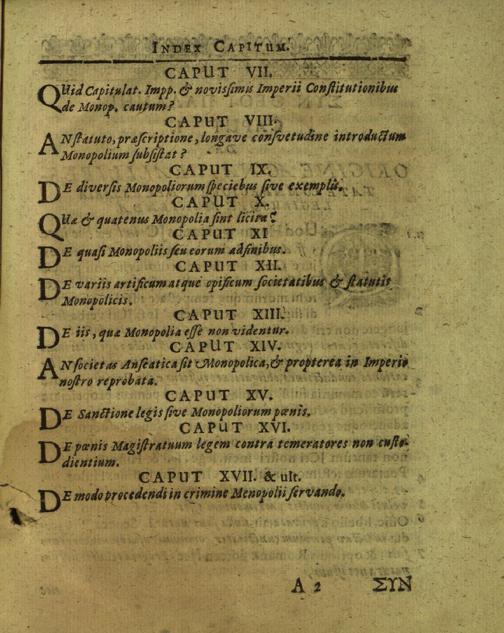 INDEX CAPITUM.
CAPUT VII.
QUid Capitulat. Impp. & novissimis Imperii Constitutionibus
de Monop. cautum?
CAPUT VIII.
AN statuto, præscriptione, longave consvetudine introductum
Monopolium subsistat?
CAPUT IX.
DE diversis Monopoliorum speciebus sive exemplis.
CAPUT X.
QUæ & quatenus Monopolia sint licita?
CAPUT XI
DE quasi Monopoliis seu eorum adfinibus.
CAPUT XII.
DE variis artificum atque opificum societatibus & statutis
Monopolicis.
CAPUT XIII.
DE iis, quæ Monopolia esse non videntur.
CAPUT XIV.
AN societas Anseatica sit Monopolica, & propterea in Imperio
nostro reprobata.
CAPUT XV.
DE Sanctione legis sive Monopoliorum pœnis.
CAPUT XVI.
DE pœnis Magistratuum legem contra temeratores non custo-
dientium.
CAPUT XVII. & ult.
DE modo procedendi in crimine Menopolii servando.
A 2 ΣΥΝ